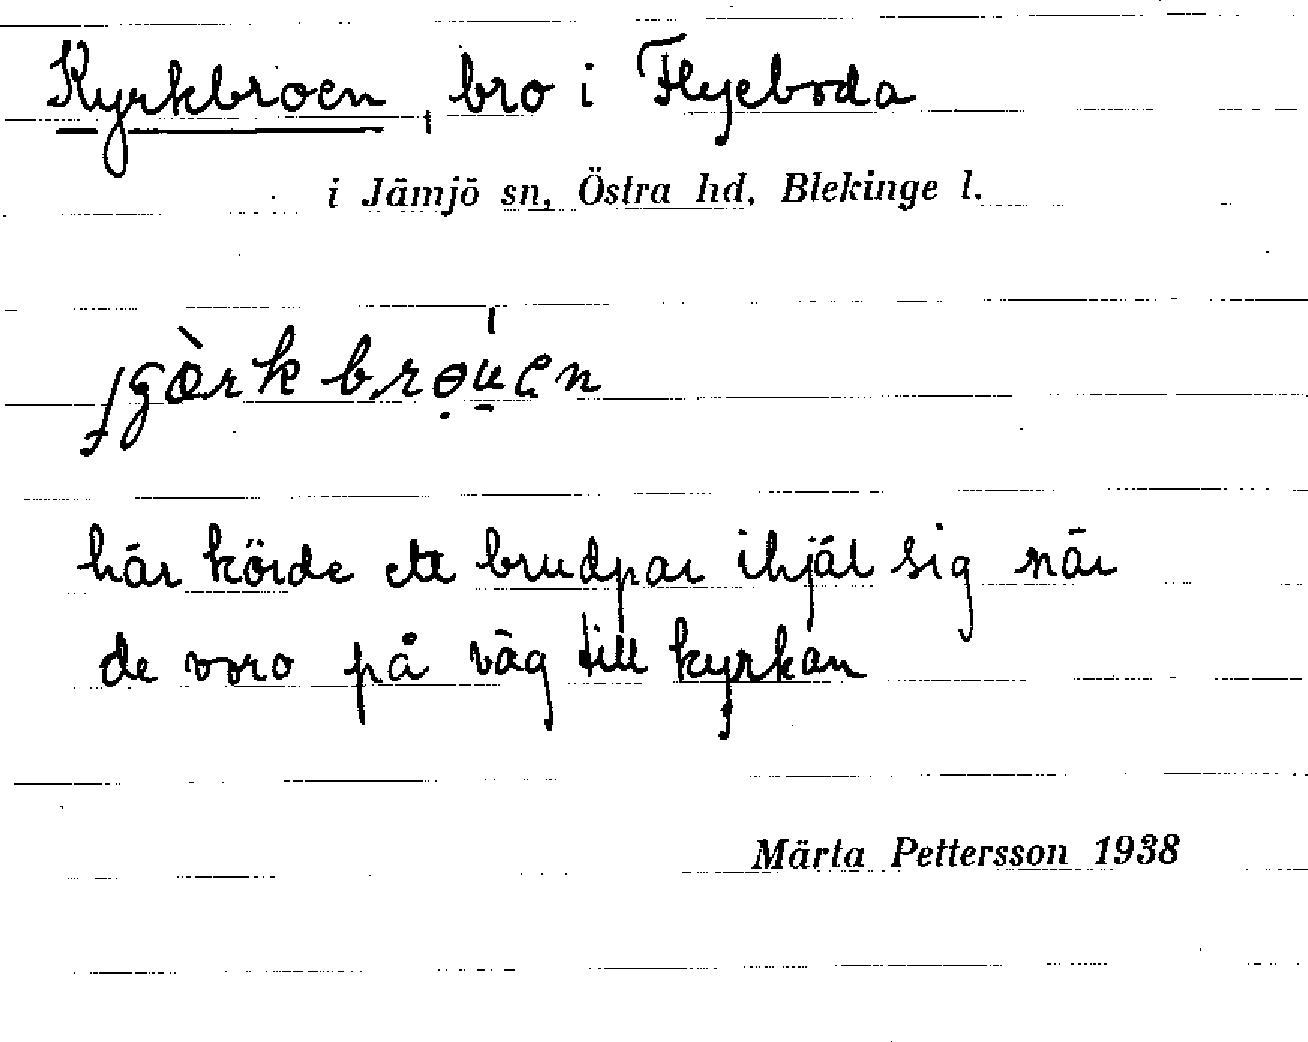 Kyrkbroen, bro i Flyeboda
i Jämjö sn, Östra hd, Blekinge l.
här körde ett brudpar ihjäl sig när
de voro på väg till kyrkan
Märta Pettersson 1938